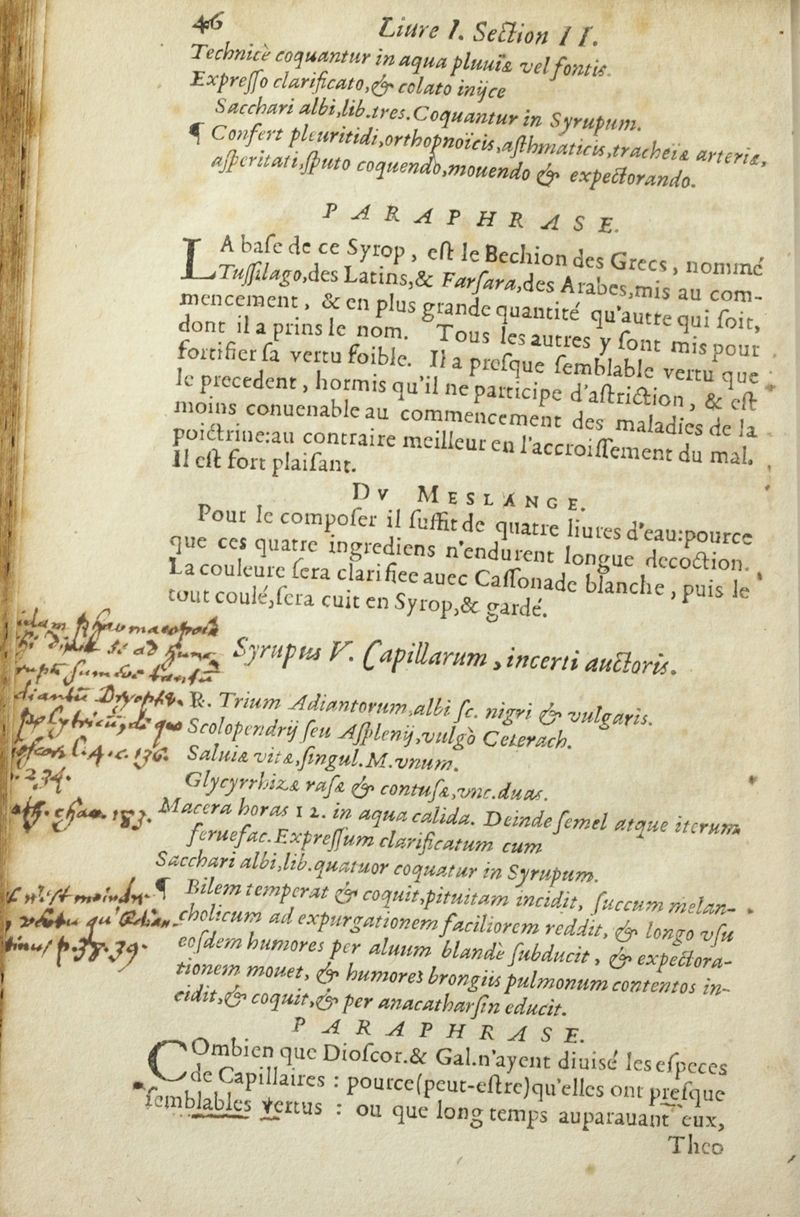 46 Liure I. Section II.
Technicè coquantur in aqua pluuiæ vel fontis.
Expresso clarificato,& colato inijce
Sacchari albi,lib.tres.Coquantur in Syrupum.
¶ Confert pleuritidi,orthopnoïcis,asthmaticis,tracheiæ arteriæ,
asperitati,sputo coquendo,mouendo & expectorando.
PARAPHRASE.
LA base de ce Syrop, est le Bechion des Grecs, nommé
Tussilago,des Latins,& Farfara,des Arabes,mis au com-
mencement, & en plus grande quantité qu'autre qui soit,
dont il a prins le nom. Tous les autres y sont mis pour
fortifier sa vertu foible. Il a presque semblable vertu que
le precedent, hormis qu'il ne participe d'astriction, & est
moins conuenable au commencement des maladies de la
poictrine:au contraire meilleur en l'accroissement du mal.
Il est fort plaisant.
Dv Meslánge.
Pour le composer il suffit de quatre liures d'eau:pource
que ces quatre ingrediens n'endurent longue decoction.
La couleure sera clarifiee auec Cassonade blanche, puis le
tout coulé,sera cuit en Syrop,& gardé.
Syrupus V. Capillarum, incerti auctoris.
℞. Trium Adiantorum,albi sc. nigri & vulgaris.
Scolopendrij seu Asplenij,vulgò Ceterach.
Saluiæ vitæ,singul.M.vnum.
Glycyrrhizæ rasæ & contusæ,vnc.duas.
Macera horas 12. in aqua calida. Deinde semel atque iterum
feruefac.Expressum clarificatum cum
Sacchari albi,lib.quatuor coquatur in Syrupum.
¶ Bilem temperat & coquit,pituitam incidit, succum melan-
cholicum ad expurgationem faciliorem reddit, & longo vsu
eosdem humores per aluum blandè subducit, & expectora-
tionem mouet, & humores brongiis pulmonum contentos in-
cidit,& coquit,& per anacatharsin educit.
PARAPHRASE.
COmbien que Dioscor.& Gal.n'ayent diuisé les especes
de Capillaires : pource(peut-estre)qu'elles ont presque
semblables vertus : ou que long temps auparauant eux,
Theo